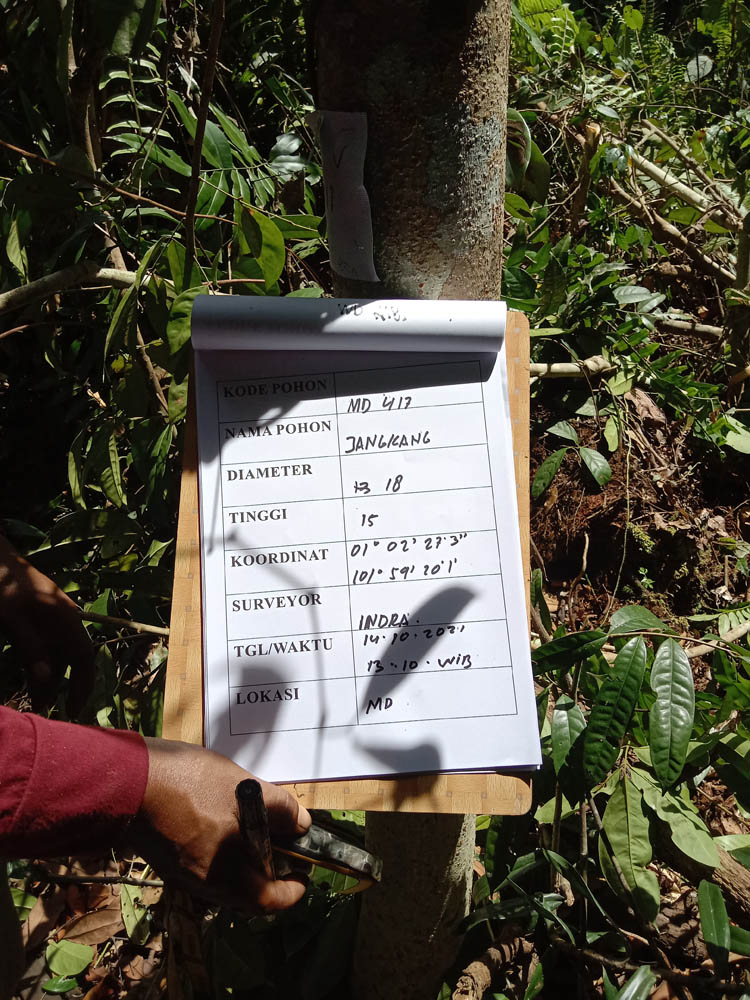 KODE POHON MD 417
NAMA POHON JANGKANG
DIAMETER 18
TINGGI 15
KOORDINAT 01° 02' 27.3"
101° 59' 20.1'
SURVEYOR INDRA.
TGL/WAKTU 14.10.2021
13.10.WIB
LOKASI MD